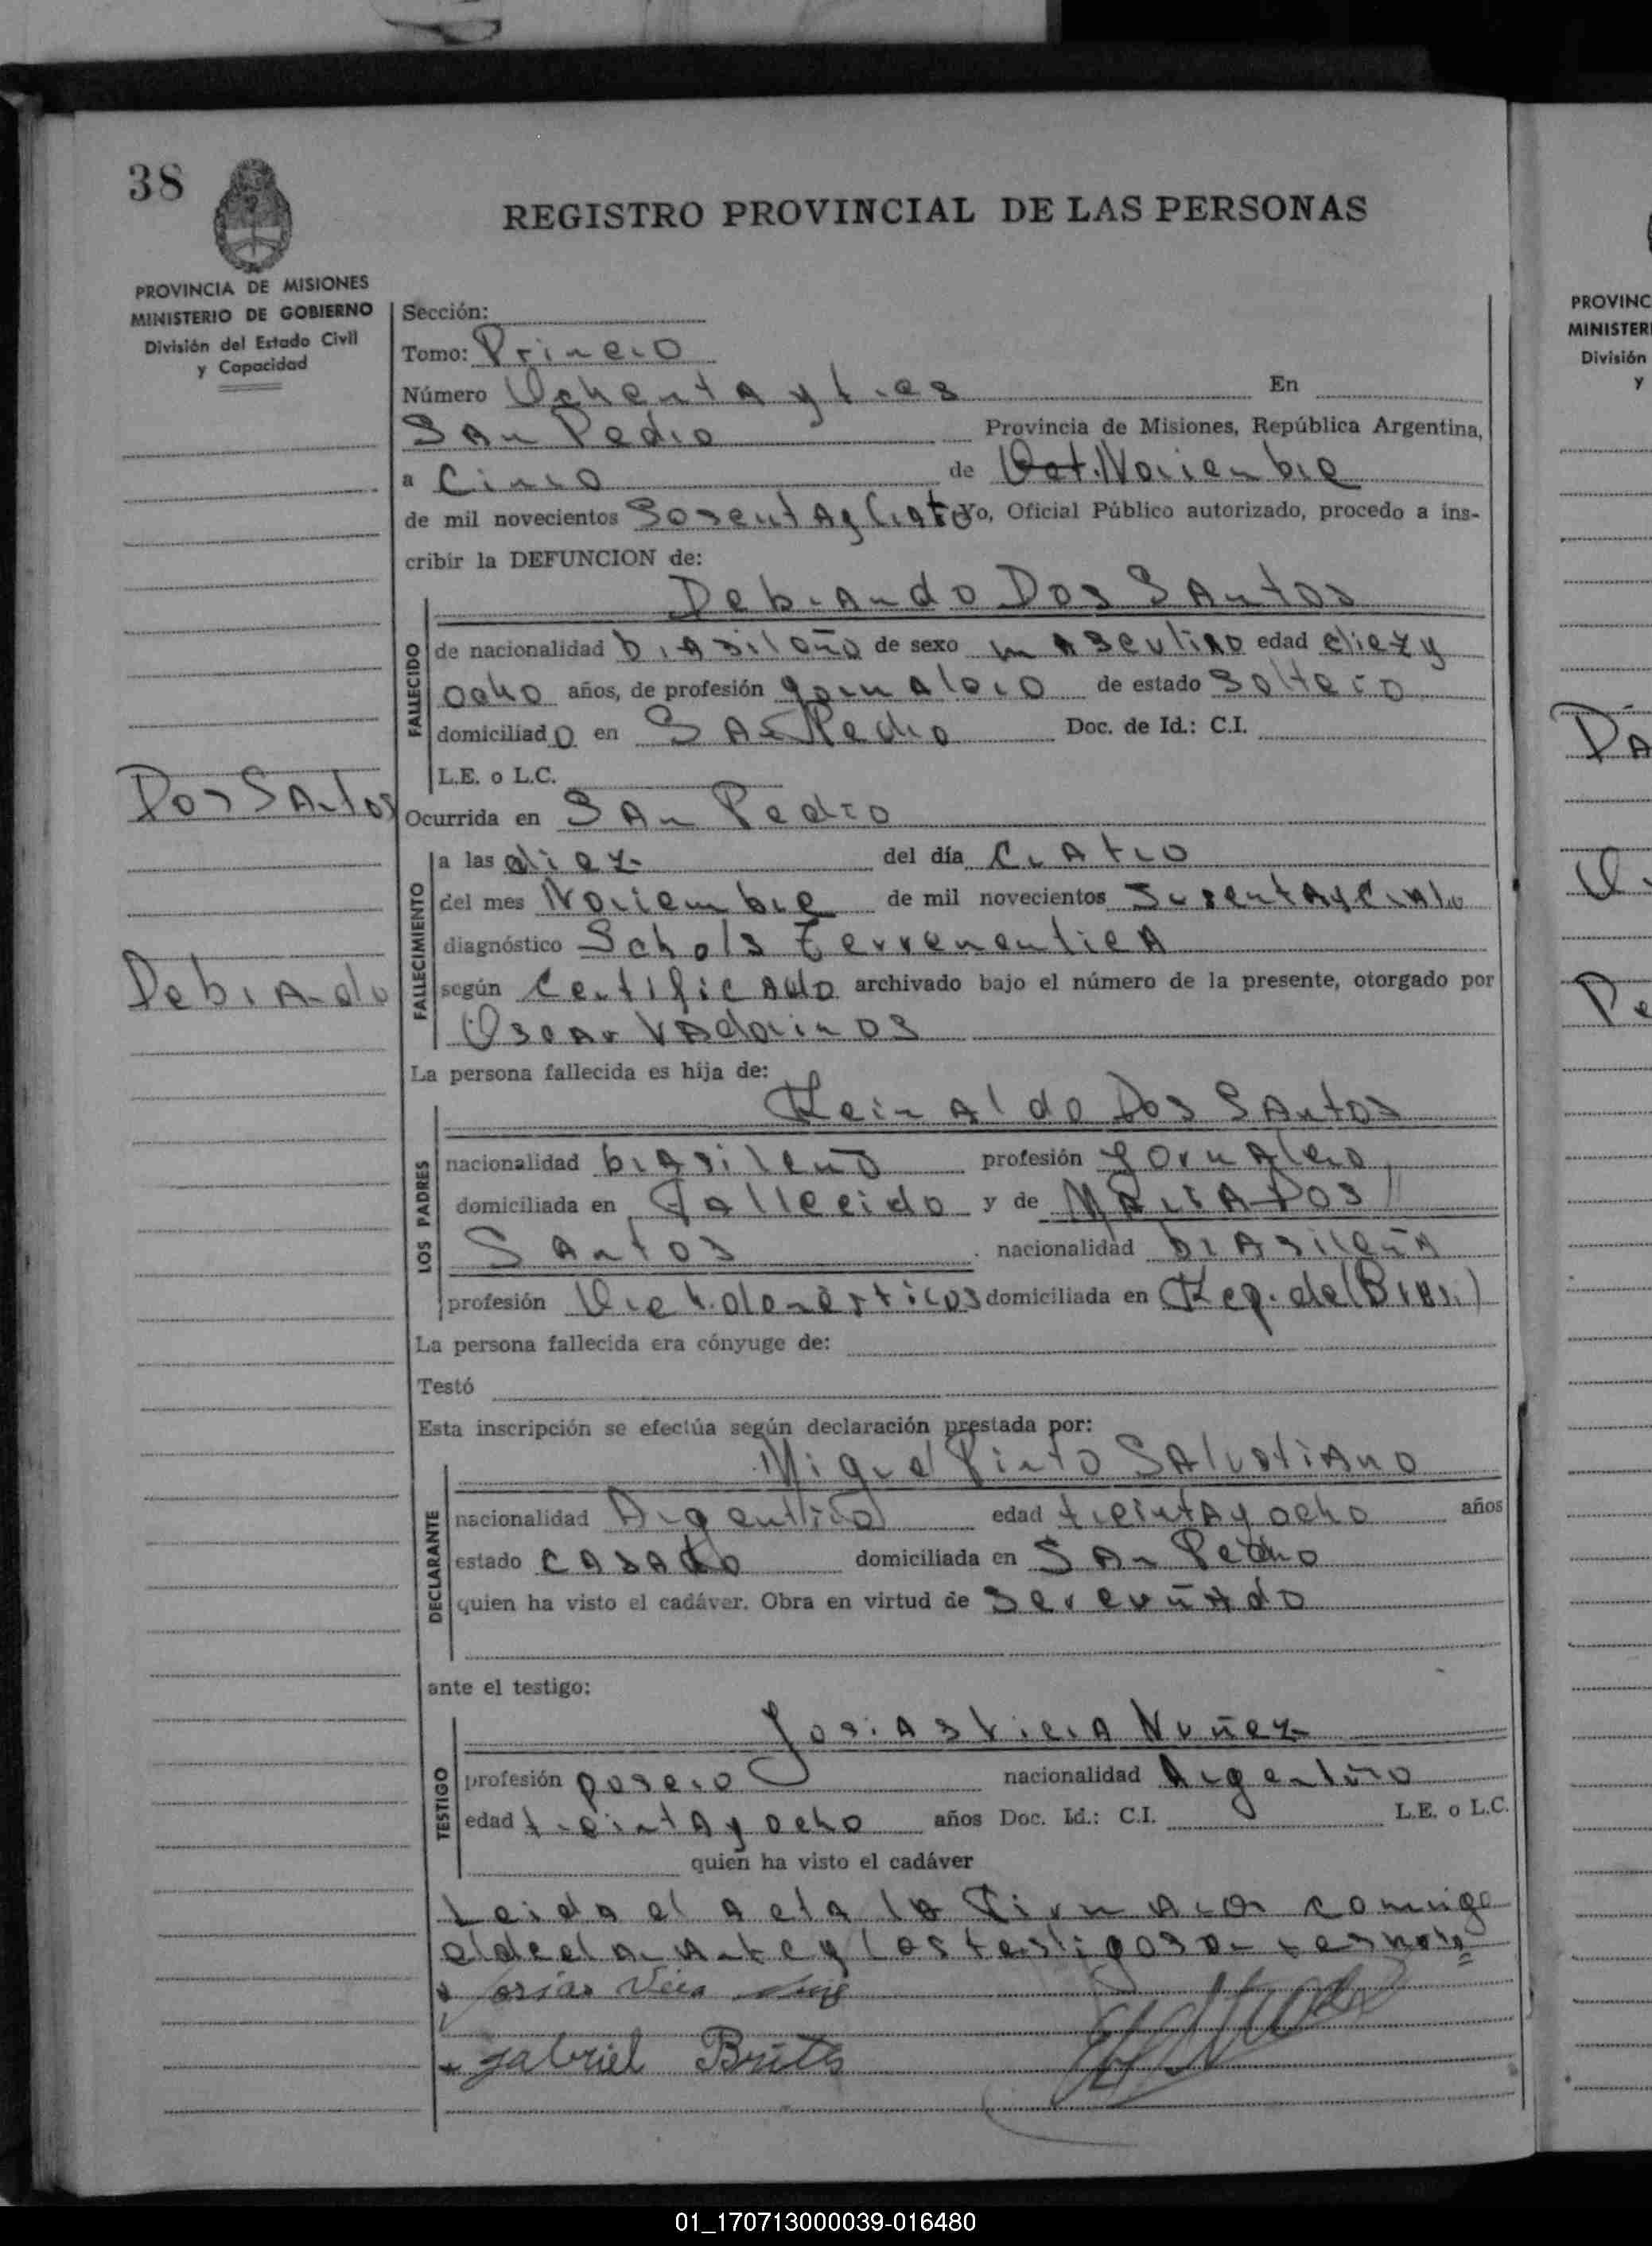 38
REGISTRO PROVINCIAL DE LAS PERSONAS
PROVINCIA DE MISIONES
MINISTERIO DE GOBIERNO
División del Estado Civil
y Capacidad
Sección:
Tomo: Primero
Número Ochenta y tres En
San Pedro Provincia de Misiones, República Argentina,
a Cinco de Oct. Noviembre
de mil novecientos Yo, Oficial Público autorizado, procedo a ins-
cribir la DEFUNCION de:
Debrando Dos Santos
FALLECIDO
de nacionalidad brasileño de sexo masculino edad diez y
ocho años, de profesión jornalero de estado Soltero
domiciliado en San Pedro Doc. de Id.: C.I.
L.E. o L.C.
Dos Santos
Ocurrida en San Pedro
FALLECIMIENTO
a las diez del día Cuatro
del mes Noviembre de mil novecientos
diagnóstico
según Certificado archivado bajo el número de la presente, otorgado por
Oscar
Debrando
La persona fallecida es hija de:
Reinaldo Dos Santos
LOS PADRES
nacionalidad brasileño profesión Jornalero
domiciliada en Fallecido y de Maria Dos
Santos nacionalidad brasileña
profesión domiciliada en Rep. del (Bras.)
La persona fallecida era cónyuge de:
Testó
Esta inscripción se efectúa según declaración prestada por:
Miguel Pinto Salustiano
DECLARANTE
nacionalidad Argentino edad treinta y ocho años
estado casado domiciliada en San Pedro
quien ha visto el cadáver. Obra en virtud de ser cuñado
ante el testigo:
Josias Vieira Nuñez
TESTIGO
profesión nacionalidad Argentino
edad treinta y ocho años Doc. Id.: C.I. L.E. o L.C.
quien ha visto el cadáver
Leida el acta la Firmaron comigo
el declarante y los testigos
Josías
Gabriel Brites
PROVINC
MINISTERI
División
y
01_170713000039-016480